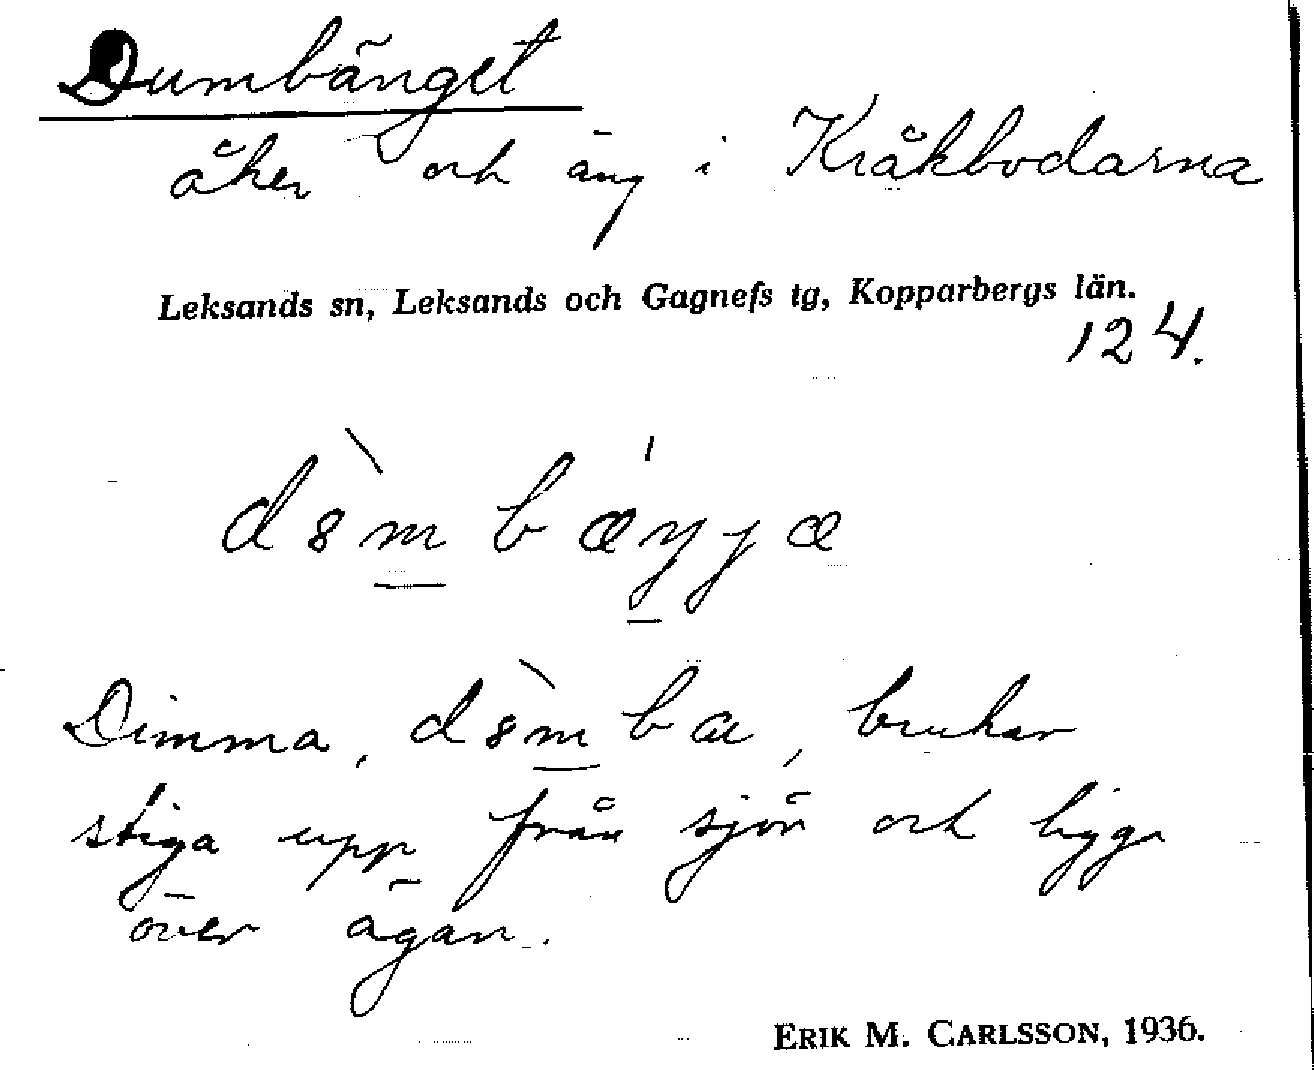 Dumbänget
åker och äng i Kråkbodarna
Leksands sn, Leksands och Gagnefs tg, Kopparbergs län.
124.
d8̀m̲bæŋ̲jæ
Dimma, d8̀m̲ba, brukar
stiga upp från sjön och ligga
över ägan.
ERIK M. CARLSSON, 1936.